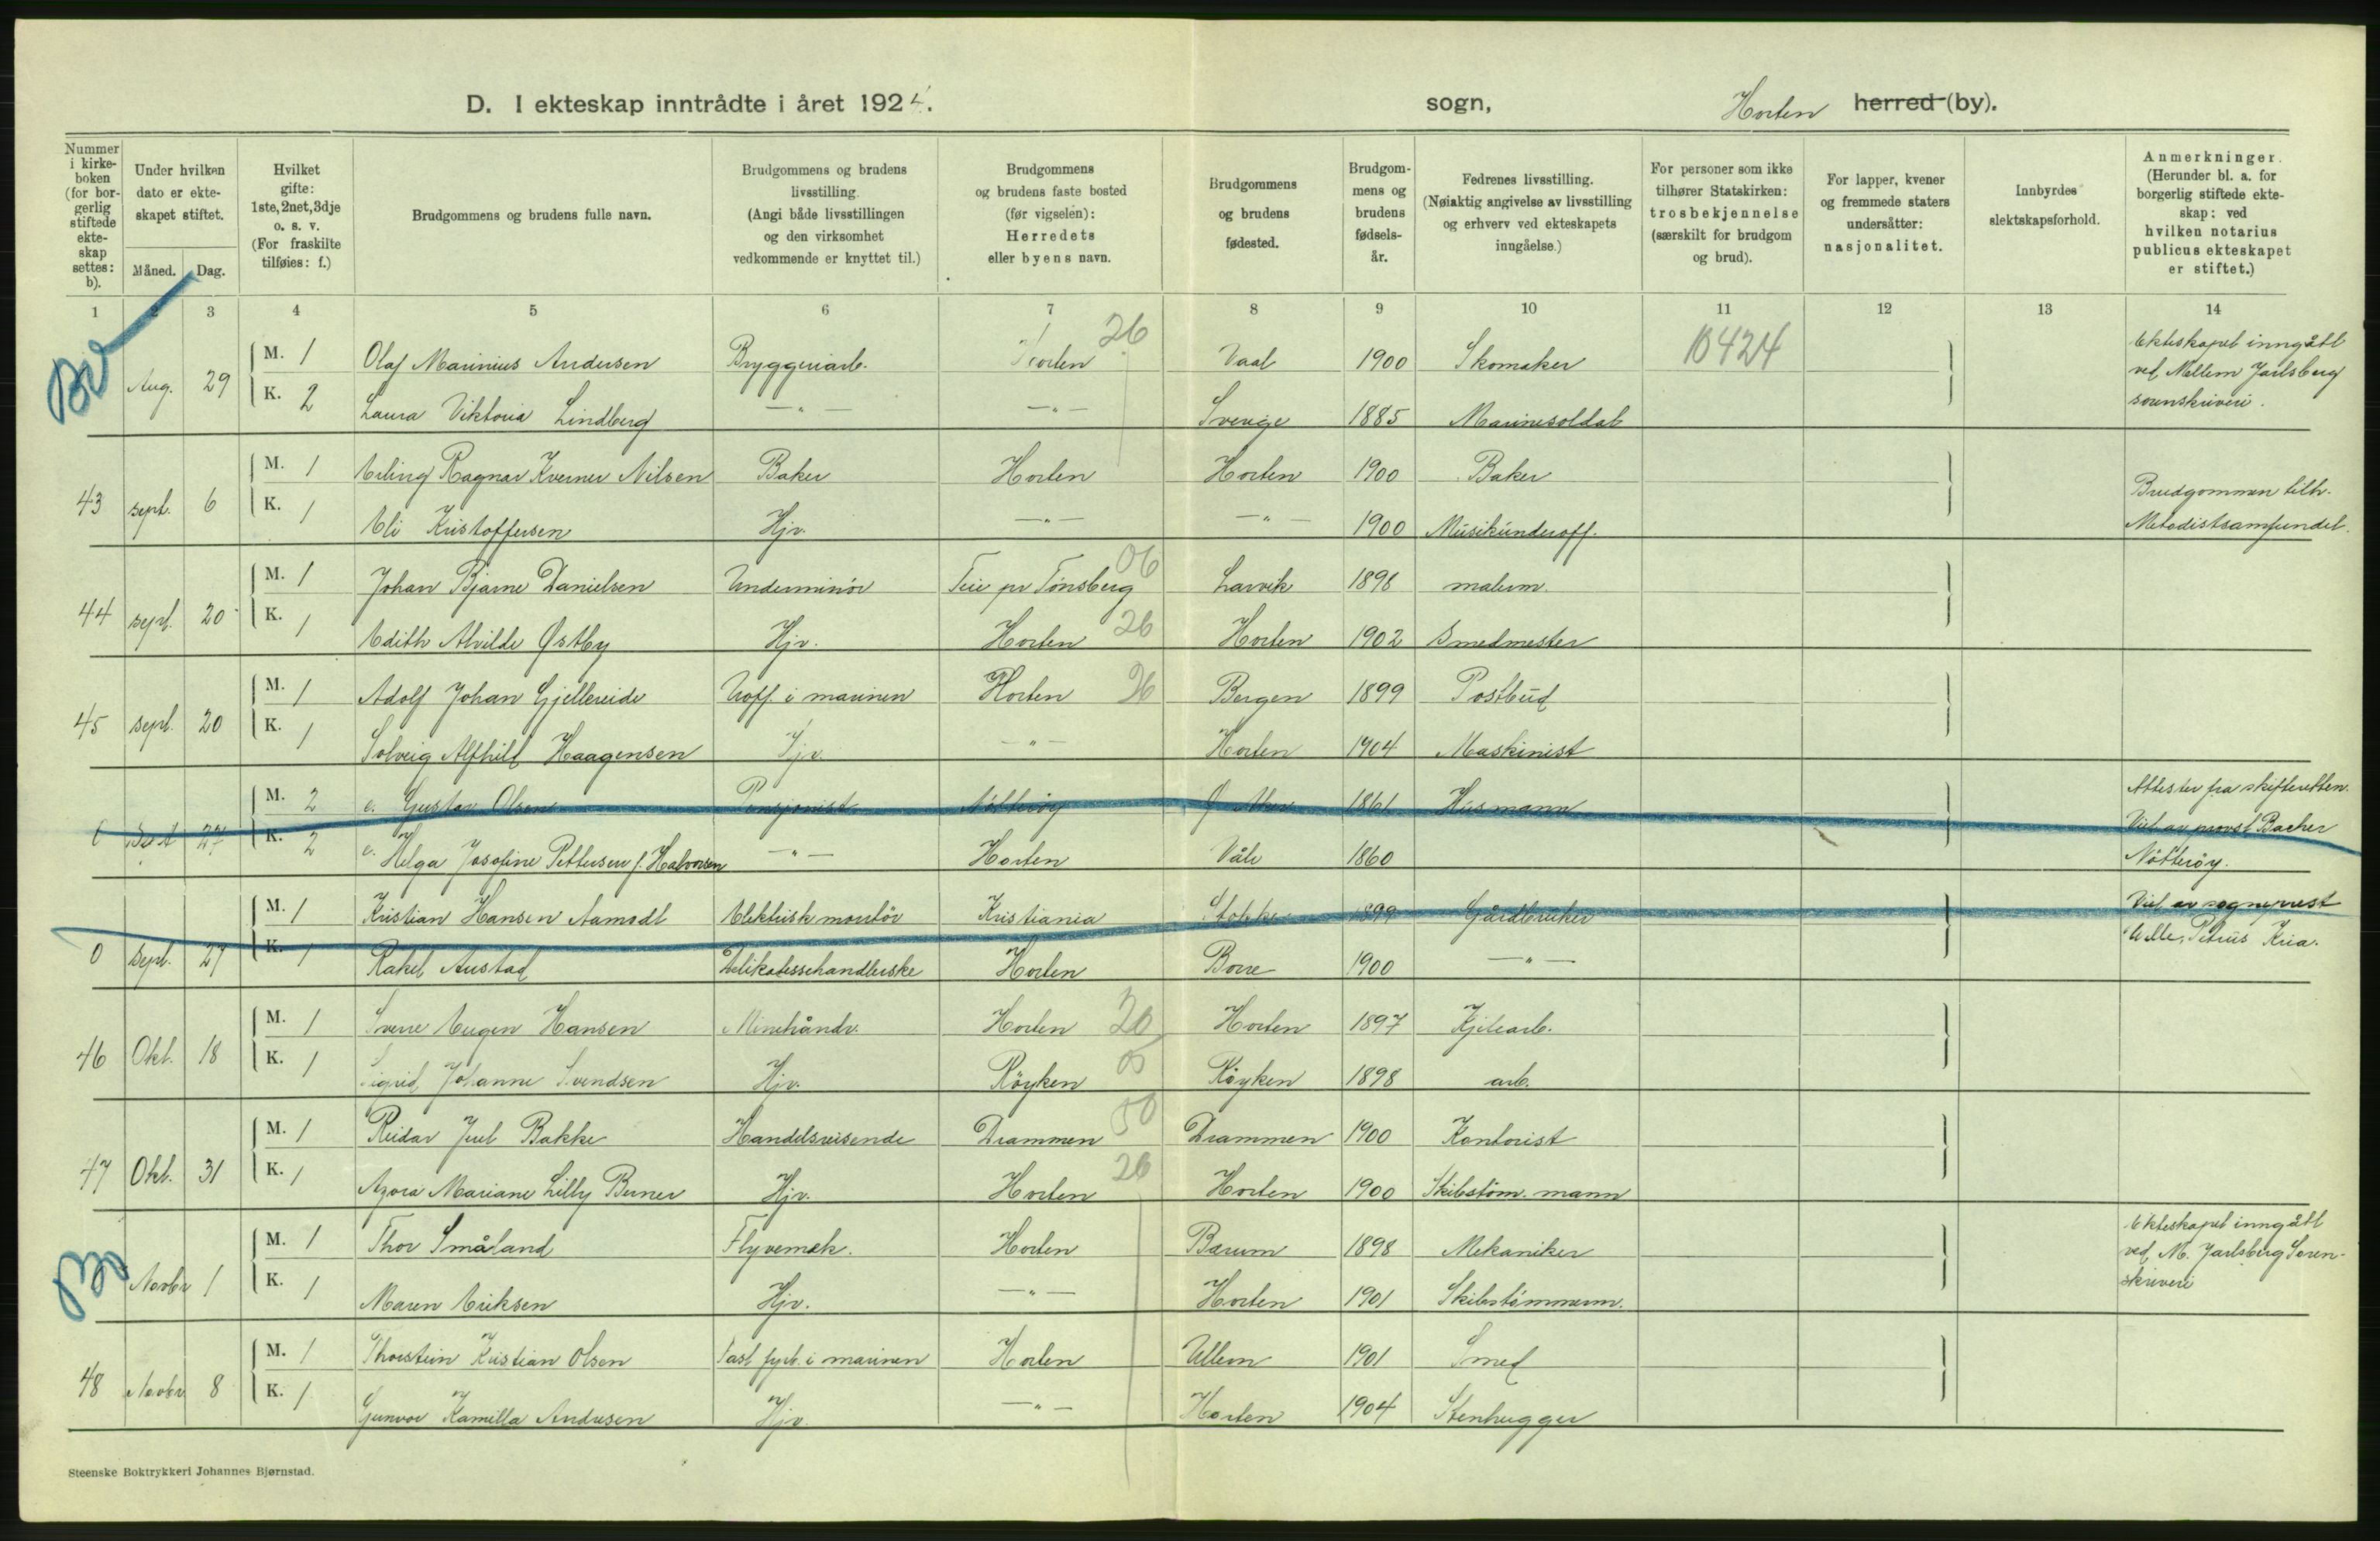 D. I ekteskap inntrådte i året 1924. sogn, Horten herred (by).
Nummer i kirkeboken (for borgerlig stiftede ekteskap settes: b).
Under hvilken dato er ekteskapet stiftet.
Måned. Dag.
Hvilket gifte: 1ste, 2net, 3dje o. s. v. (For fraskilte tilføies: f.)
Brudgommens og brudens fulle navn.
Brudgommens og brudens livsstilling. (Angi både livsstillingen og den virksomhet vedkommende er knyttet til.)
Brudgommens og brudens faste bosted (før vigselen): Herredets eller byens navn.
Brudgommens og brudens fødested.
Brudgommens og brudens fødselsår.
Fedrenes livsstilling. (Nøiaktig angivelse av livsstilling og erhverv ved ekteskapets inngåelse.)
For personer som ikke tilhører Statskirken: trosbekjennelse (særskilt for brudgom og brud).
For lapper, kvener og fremmede staters undersåtter: nasjonalitet.
Innbyrdes slektskapsforhold.
Anmerkninger. (Herunder bl. a. for borgerlig stiftede ekteskap: ved hvilken notarius publicus ekteskapet er stiftet.)
1 2 3 4 5 6 7 8 9 10 11 12 13 14
Aug. 29 M. 1 Olaf Marinius Andersen Bryggeriarb. Horten 26 Vaal 1900 Skomaker 10424 Ekteskapet inngått ved Mellem Jarlsberg sorenskriveri.
K. 2 Laura Viktoria Lindberg —"— —"— Sverige 1885 Marinesoldat
43 sept. 6 M. 1 Erling Ragnar Kverner Nilsen Baker Horten Horten 1900 Baker Brudgommen tilh. Metodistsamfundet.
K. 1 Eli Kristoffersen Hjv. —"— —"— 1900 Musikunderoff.
44 sept. 20 M. 1 Johan Bjarne Danielsen Underminör Teie pr Tönsberg 06 Larvik 1898 malerm.
K. 1 Edith Alvilde Østby Hjv. Horten 26 Horten 1902 Smedmester
45 sept. 20 M. 1 Adolf Johan Gjellereide Uoff. i marinen Horten 26 Bergen 1899 Postbud
K. 1 Solveig Alfhild Haagensen Hjv. —"— Horten 1904 Maskinist
27 M. 2 e. Gustav Olsen Pensjonist Nötteröy 1861 Husmann Attester fra skifteretten. Viet av provst Bacher Nötteröy.
K. 2 e. Helga Josefine Pettersen f. Halvorsen —"— Horten Våle 1860
0 Sept. 27 M. 1 Kristian Hansen Aamodt Elektrisk montör Kristiania Stokke 1899 Gårdbruker Viet av sogneprest Wille, Petrus Kria.
K. 1 Rakel Austad Delikatessehandlerske Horten Borre 1900 —"—
46 Okt. 18 M. 1 Sverre Eugen Hansen Minehåndv. Horten 26 Horten 1897 Kjelearb.
K. 1 Sigrid Johanne Svendsen Hjv. Röyken 05 Röyken 1898 arb.
47 Okt. 31 M. 1 Reidar Juul Bakke Handelsreisende Drammen 50 Drammen 1900 Kontorist
K. 1 Azora Mariane Lilly Berner Hjv. Horten 26 Horten 1900 Skibstöm.mann
Novbr 1 M. 1 Thor Småland Flyvemek. Horten Bærum 1898 Mekaniker Ekteskapet inngått ved M. Jarlsberg Sorenskriveri
K. 1 Maren Eriksen Hjv. —"— Horten 1901 Skibstömmerm.
48 Novbr 8 M. 1 Thorstein Kristian Olsen Fast fyrb. i marinen Horten Ullern 1901 Smed
K. 1 Gunvor Kamilla Andresen Hjv. —"— Horten 1904 Stenhugger
Steenske Boktrykkeri Johannes Bjørnstad.